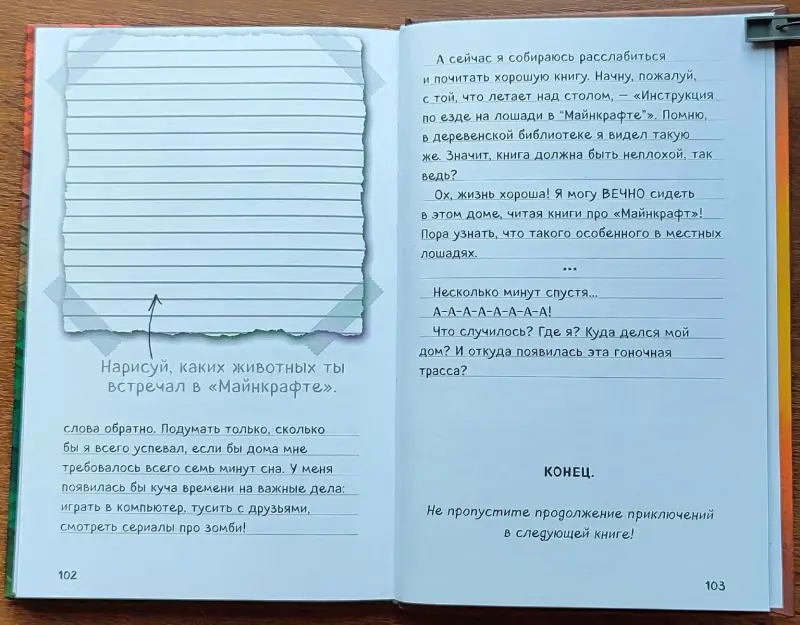 Нарисуй, каких животных ты
встречал в «Майнкрафте».
слова обратно. Подумать только, сколько
бы я всего успевал, если бы дома мне
требовалось всего семь минут сна. У меня
появилась бы куча времени на важные дела:
играть в компьютер, тусить с друзьями,
смотреть сериалы про зомби!
102
А сейчас я собираюсь расслабиться
и почитать хорошую книгу. Начну, пожалуй,
с той, что летает над столом, — «Инструкция
по езде на лошади в "Майнкрафте"». Помню,
в деревенской библиотеке я видел такую
же. Значит, книга должна быть неплохой, так
ведь?
Ох, жизнь хороша! Я могу ВЕЧНО сидеть
в этом доме, читая книги про «Майнкрафт»!
Пора узнать, что такого особенного в местных
лошадях.
***
Несколько минут спустя...
А-А-А-А-А-А-А-А!
Что случилось? Где я? Куда делся мой
дом? И откуда появилась эта гоночная
трасса?
КОНЕЦ.
Не пропустите продолжение приключений
в следующей книге!
103